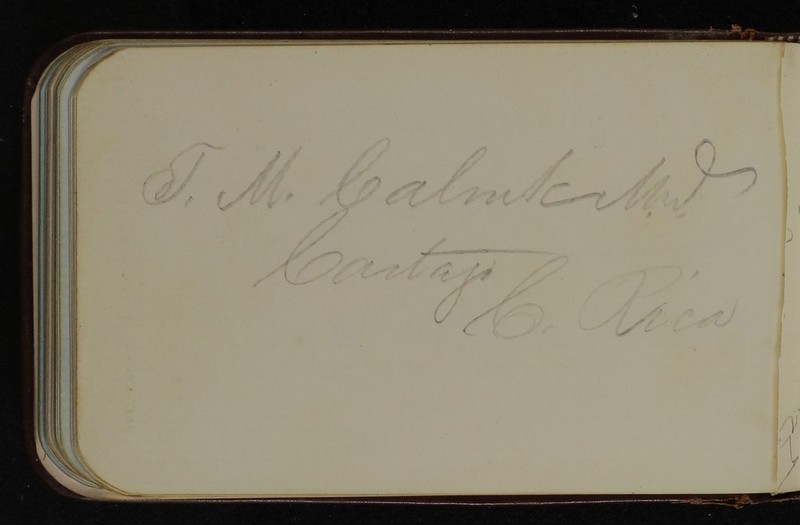 T. M. Calnek M.D.
Cartago
C. Rica